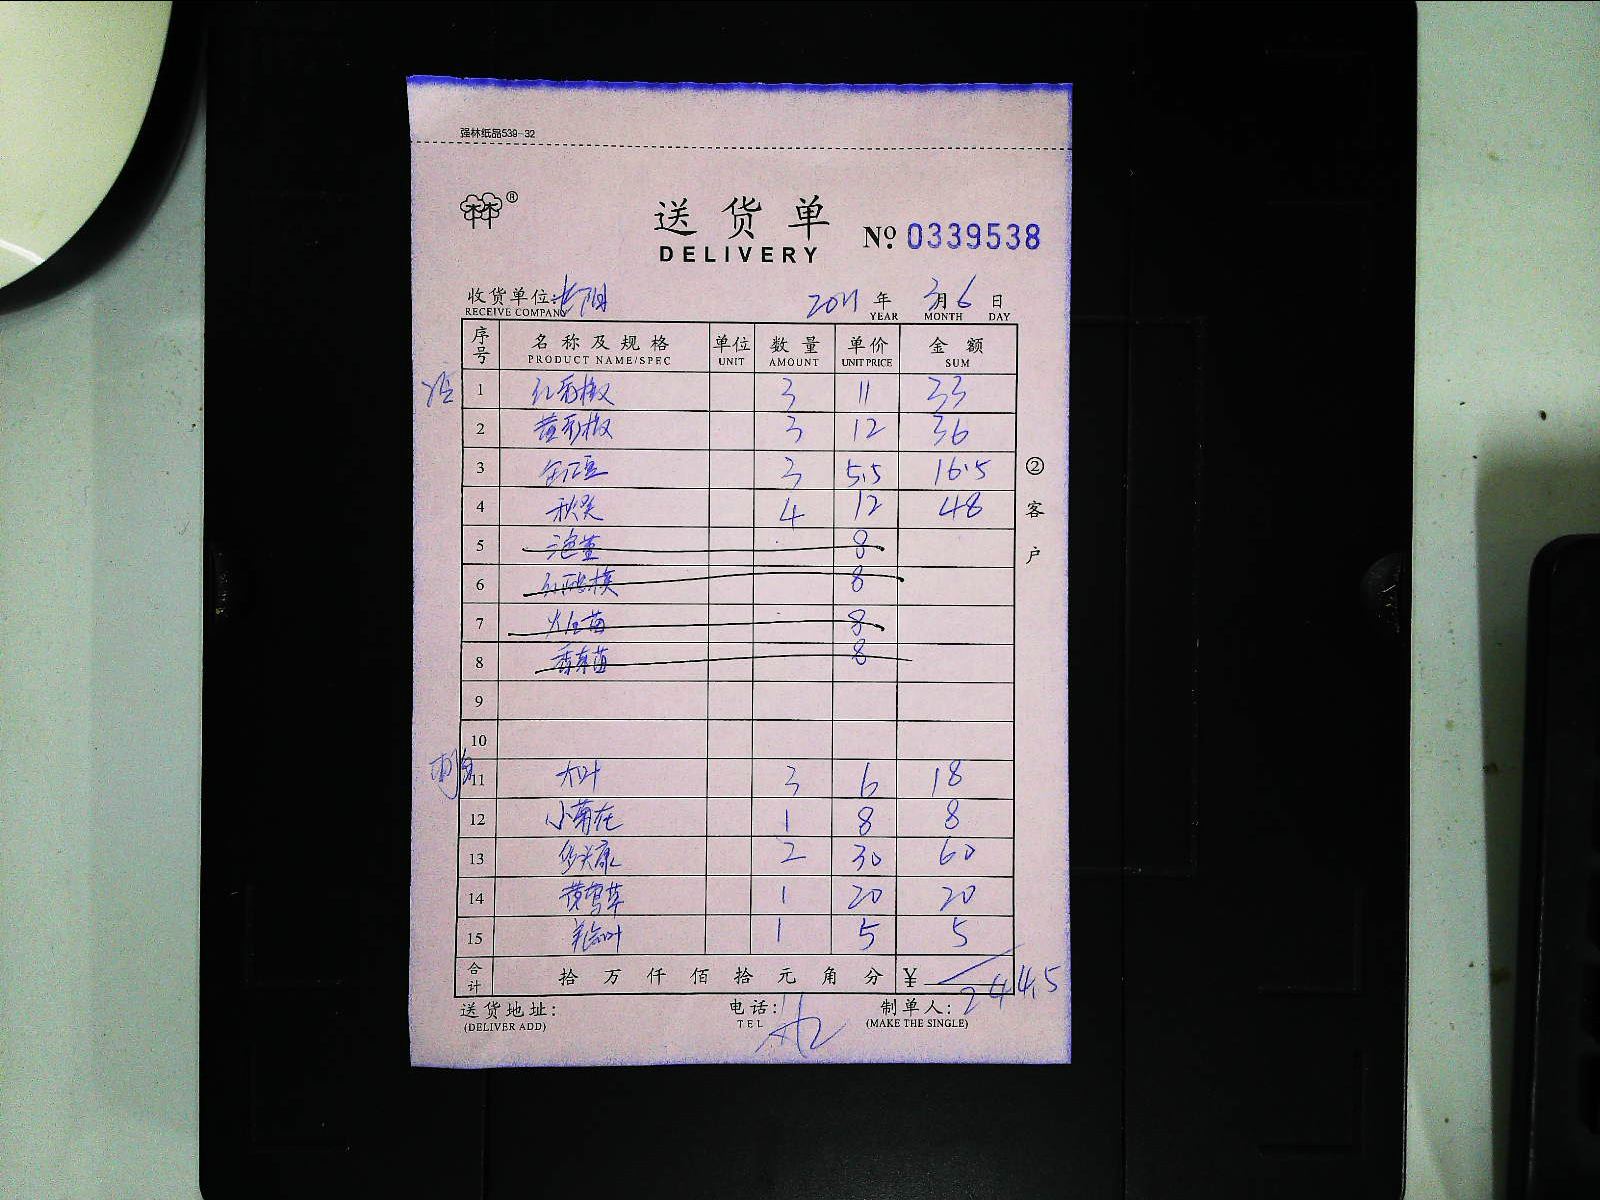 强林纸品539-32
林林®
送货单
DELIVERY
№ 0339538
收货单位: 沈阳
RECEIVE COMPANY
2011 年 3 月 6 日
YEAR MONTH DAY
序号 名称及规格 单位 数量 单价 金额
PRODUCT NAME/SPEC UNIT AMOUNT UNIT PRICE SUM
1 红彩椒 3 11 33
2 黄彩椒 3 12 36
3 3 5.5 16.5
4 秋葵 4 12 48
5 8
6 8
7 8
8 8
9
10
11 大叶 3 6 18
12 小菊花 1 8 8
13 2 30 60
14 1 20 20
15 1 5 5
合计 拾 万 仟 佰 拾 元 角 分 ¥ 244.5
送货地址: 电话: 制单人:
(DELIVER ADD) TEL (MAKE THE SINGLE)
② 客户